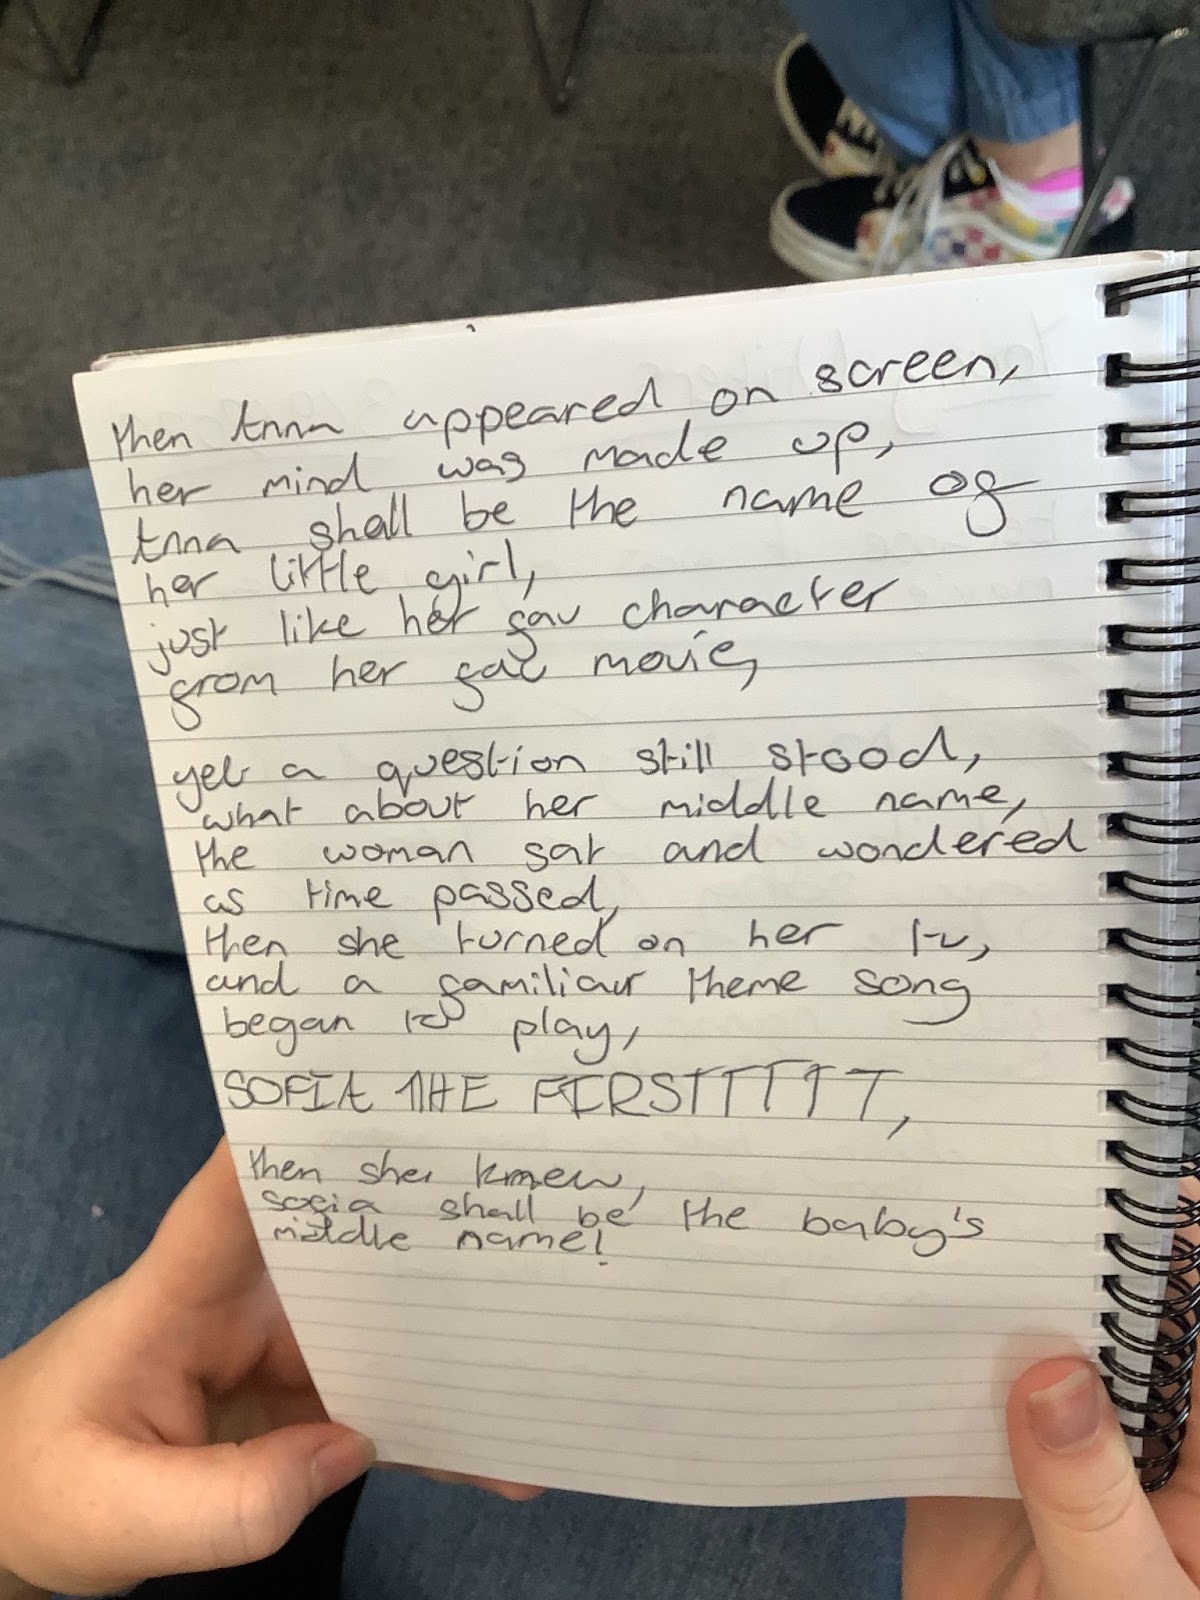 then Anna appeared on screen,
her mind was made up,
Anna shall be the name of
her little girl,
just like her fav character
from her fav movie,
yet a question still stood,
what about her middle name,
the woman sat and wondered
as time passed,
then she turned on her tv,
and a familiaur theme song
began to play,
SOFIA THE FIRSTTTTT,
then she knew,
sofia shall be the baby's
middle name!